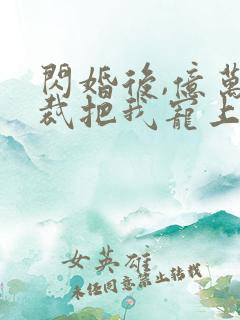 閃婚後,億萬
裁把我寵上
女英雄
未经同意禁止转载